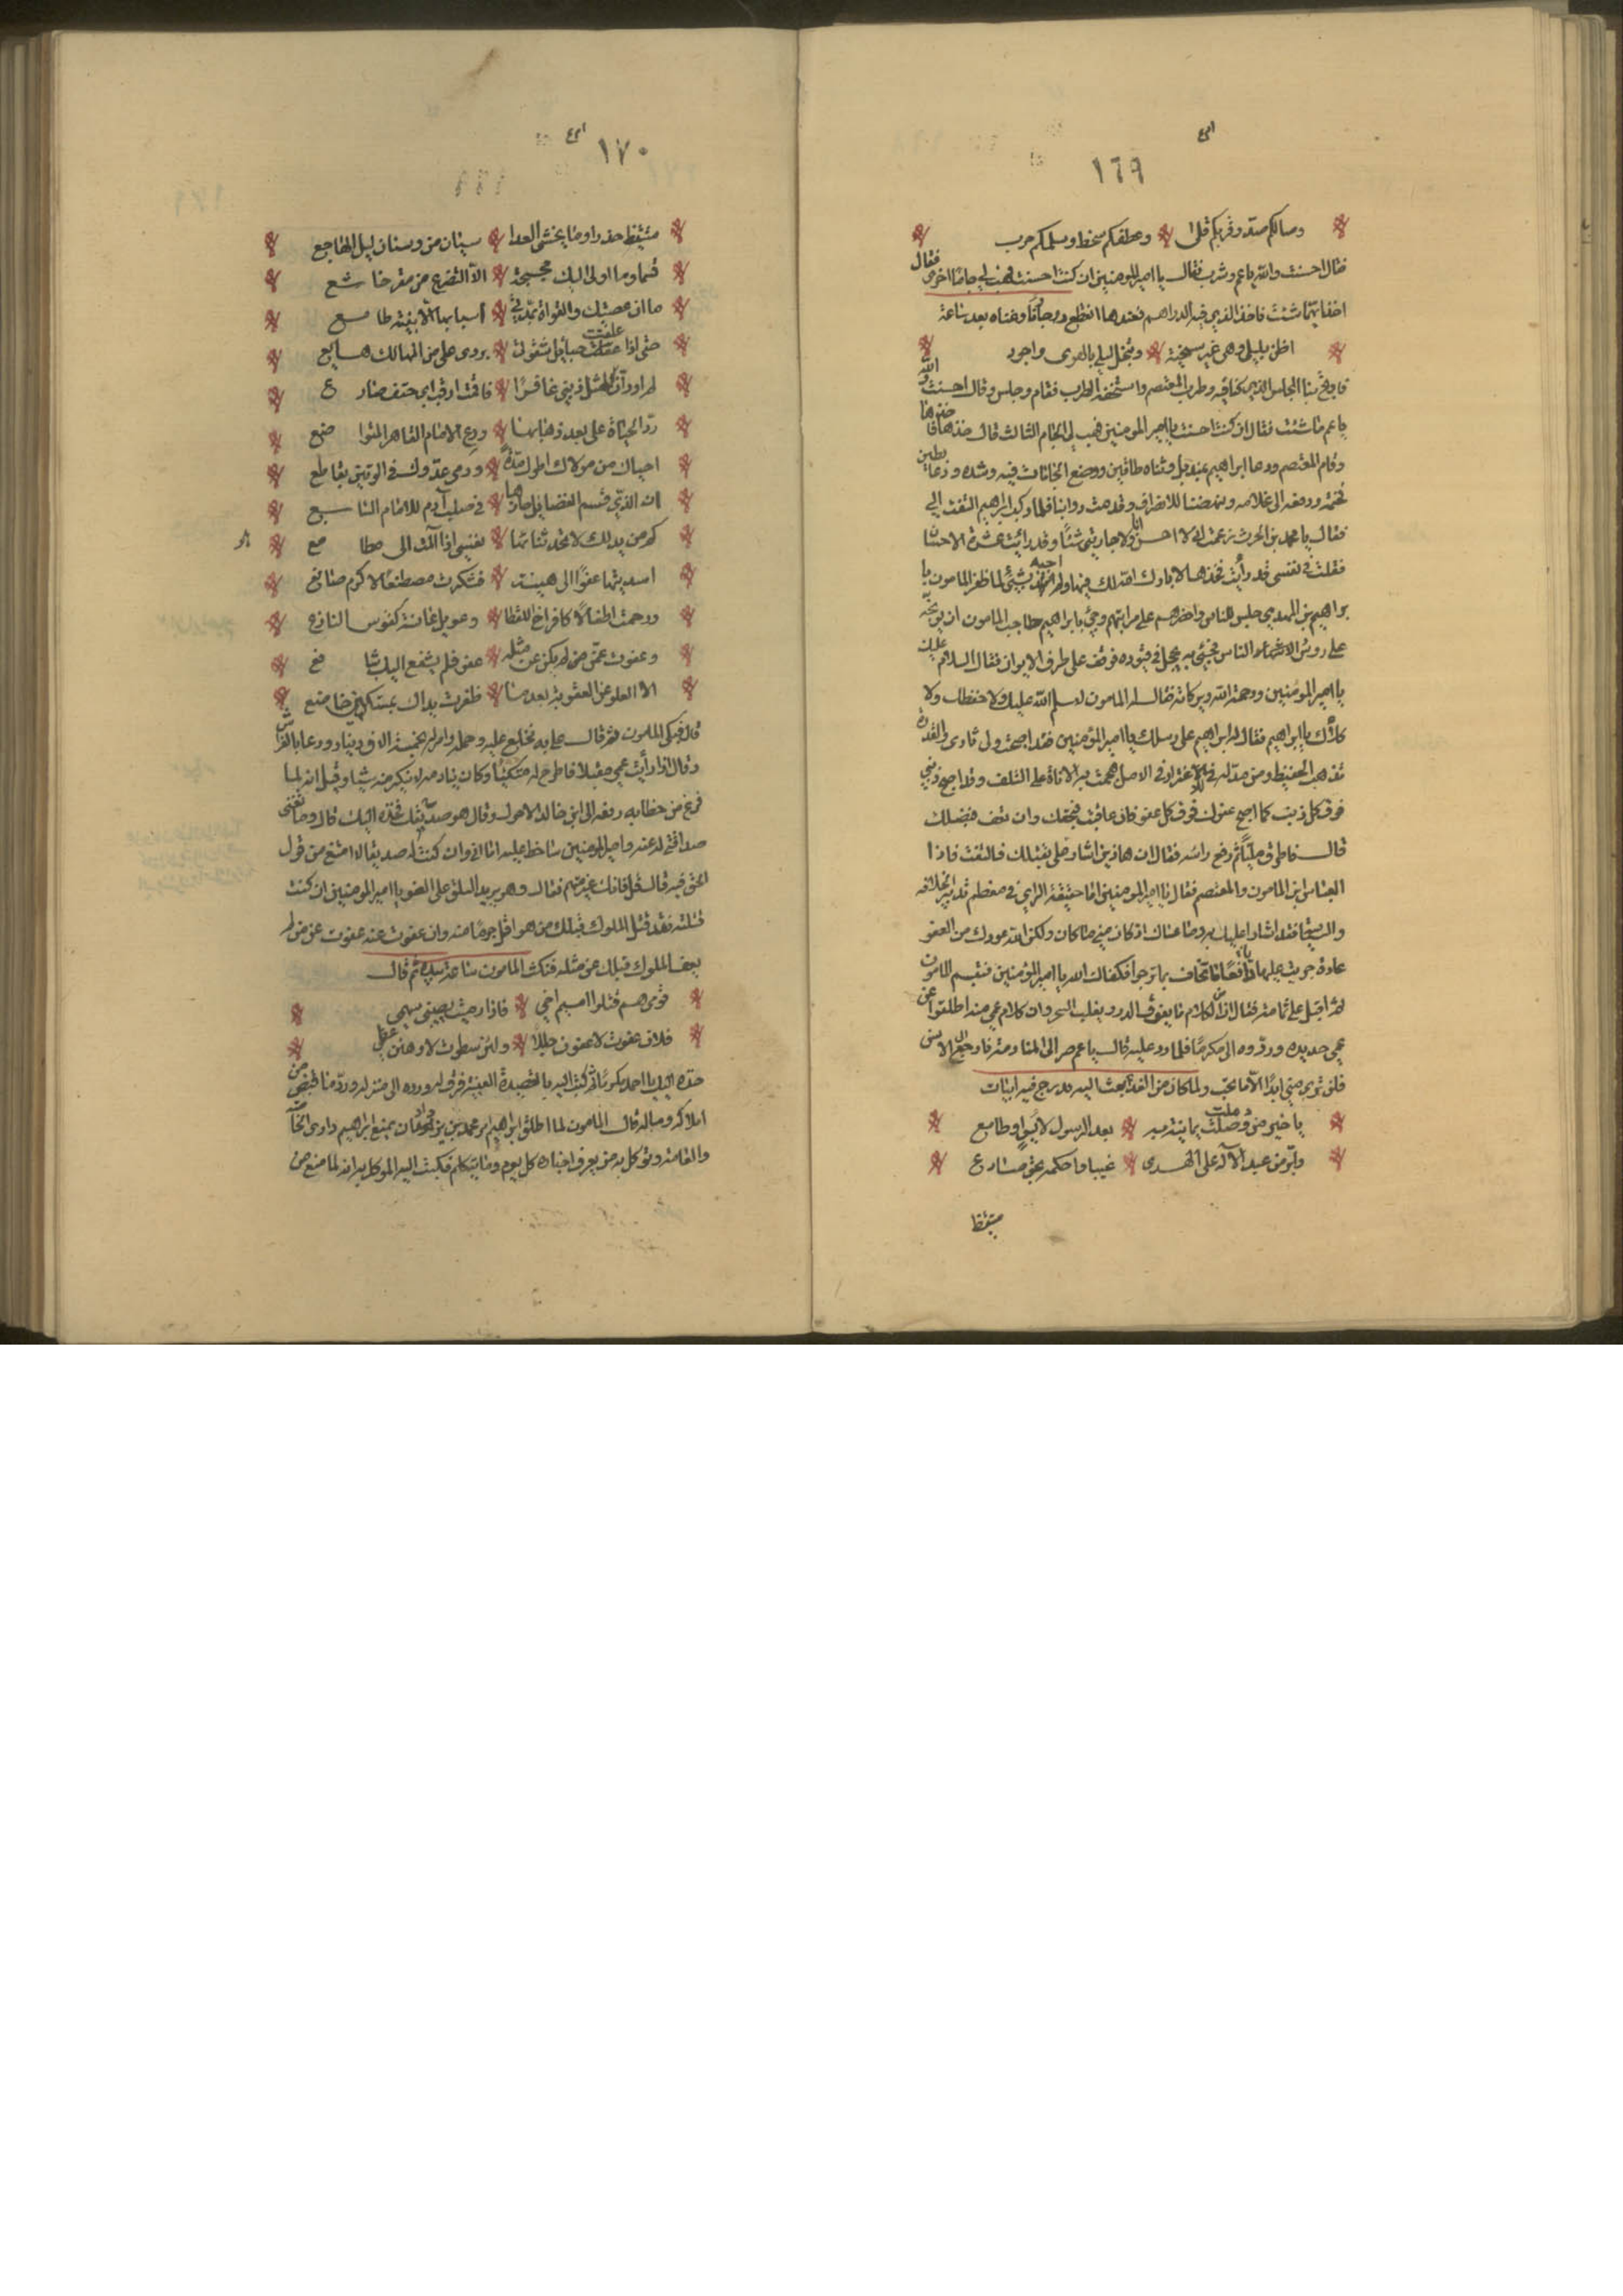 ١٦٩
وصالكم صد وقربكم قلى وعطفكم سخط وسلمكم حرب
فقال احسنت والله ياعم وشرب فقال يا امير المومنين ان كنت احسنت فهب لي جاما اخرى فقال
اخف ايهما شئت فاخذ الذي فيه الدراهم فعندها انقطع وغناه بعد ساعة
اظن بليلى وهى غير سخية وتبخل ليلى بالهوى واجود
المجلس الذي وطرب المعتصم واستخفه الطرب فقام وجلس وقال احسنت والله
ياعم ما شئت فقال ان كنت احسنت يا امير المومنين فهب لي الجام الثالث قال خذها فاخذها
وقام المعتصم ودعا ابراهيم بمنديل وثناه طاقين ووضع الجامات فيه وشده ودعا بطين
فختمه ودفعه الى غلامه ونهضنا للانصراف وقدمت دوابنا فلما ركب ابراهيم التفت الي
فقال يا محمد بن الحرث زعمت اني لا احسن انا ولا جاريتى شيئا وقد رايت ثمرة الاحسان
فقلت في نفسى قد رأيت فخذها لا بارك الله لك فيها ولم اجبه بشئ لما ظفر المامون با
براهيم بن المهدي جلس للناس واخذهم على مراتبهم وجئ بابراهيم حاجب المامون ان يوبخه
على رؤس الناس فجئي به يحجل في قيوده فوقف على طرف الايوان فقال السلام عليك
يا امير المومنين ورحمة الله وبركاته فقال له المامون لا سلم الله عليك ولا حفظك ولا
كلاك يا ابراهيم فقال له ابراهيم على رسلك يا امير المؤمنين فقد اصبحت ولي ثارى والقدرة
تذهب الحفيظة ومن مد له في الاغترار في الامل هجمت به الاناة على التلف وقد اصبح ذنبي
فوق كل ذنب كما اصبح عفوك فوق كل عفو فان عاقبت فبحقك وان تعف فبفضلك
قال فاطرق مليا ثم رفع راسه فقال ان هاذين اشارا على بقتلك فالتفت فاذا
العباس ابن المامون والمعتصم فقال يا امير المومنين اما حقيقة الراي في معظم تدبير الخلافة
والسياسة فقد اشارا عليك به وما غشاك اذ كان مني ما كان ولكن الله عودك من العفو
عادة جريت عليها دافعا ما تخاف بما ترجو فكفاك الله يا امير المؤمنين فتبسم المامون
ثم اقبل على ثمامة فقال ان من الكلام ما يفوق الدر ويغلب السحر وان كلام عمي منه اطلقوا عن
عمي حديده وردوه الى مكرما فلما رد عليه قال ياعم صر الى المنادمة وارجع الى الانس
فلن ترى مني ابدا الا ما تحب ولما كان من الغد بعث اليه بدرج فيه ابيات
يا خير من وصلت يمانية به بعد الرسول لايس او طامع
وابر من عبد الاله على الهدى غيبا واحكمه بحق صادع
متيقظا
١٧٠
متيقظ حذرا وما يخشى العدا سيان من وسنان ليل الهاجع
قسما وما ادلى اليك بحجة الا التضرع من مقر خاشع
ما ان عصيتك والغواة تمدني اسبابها الا بنية طامع
حتى اذا علقت حبايل شقوتى بردى على من المهالك هايع
لم ادر ان لمثل ذنبي غافرا فاقمت ارقب اي حتف صارع
رد الحياة على بعد ذهابها ورع الامام القاهر المتواضع
احياك من مولاك اطول مدة ورمى عدوك في الوتين بقاطع
ان الذي قسم الفضايل حازها في صلب آدم للامام السابع
كم من يد لك لا تحدثنى بها نفسى اذا آلت الى مطامع
اسديتها عفوا الى هنيئة فشكرت مصطنعا لاكرم صانع
ورحمت اطفالا كافراخ القطا وعويل عانسة كقوس النازع
وعفوت عمن لم يكن عن مثله عفو فلم يشفع اليك شافع
الا العلو عن العقوبة بعدما ظفرت يداك بمستكين خاضع
قال فبكى المامون ثم قال على به فخلع عليه وحمله وامر له بخمسة الاف دينار ودعا بالفراش
وقال اذا رأيت عمي مقبلا فاطرح له متكئا وكان ينادمه لا ينكر منه شيا وقيل انه لما
فرغ من خطابه دفعه الى ابن خالد الاحول وقال هو صديقك فخذه اليك قال وما تغنى
صداقتي له عنه وامير المومنين ساخط عليه اما اني وان كنت له صديقا لا امتنع من قول
الحق فيه قال قل فانك غير متهم فقال وهو يريد التسلق على العفو يا امير المومنين ان كنت
قتلته فقد قتل الملوك قبلك من هو اقل جرما منه وان عفوت عنه عفوت عن من لم
يعف الملوك قبلك عن مثله فنكث المامون ساعة بيده ثم قال
قومى هم قتلوا اميم اخي فاذا رميت يصيبنى سهمى
فلان عفوت لاعفون جللا ولئن سطوت لاوهنن عظمى
خذه اليك يا احمد مكرما ثم كتب اليه بالقصيدة العينية فرق له ورده الى منزله ورد ما قبض من
املاكه وماله قال المامون لما اطلق ابراهيم امر محمد بن يزداد ان يمنع ابراهيم دارى الخاصة
والعامة وتوكل به من يعرف اخباره كل يوم وما يتكلم فكتب اليه الموكل به انه لما منع من